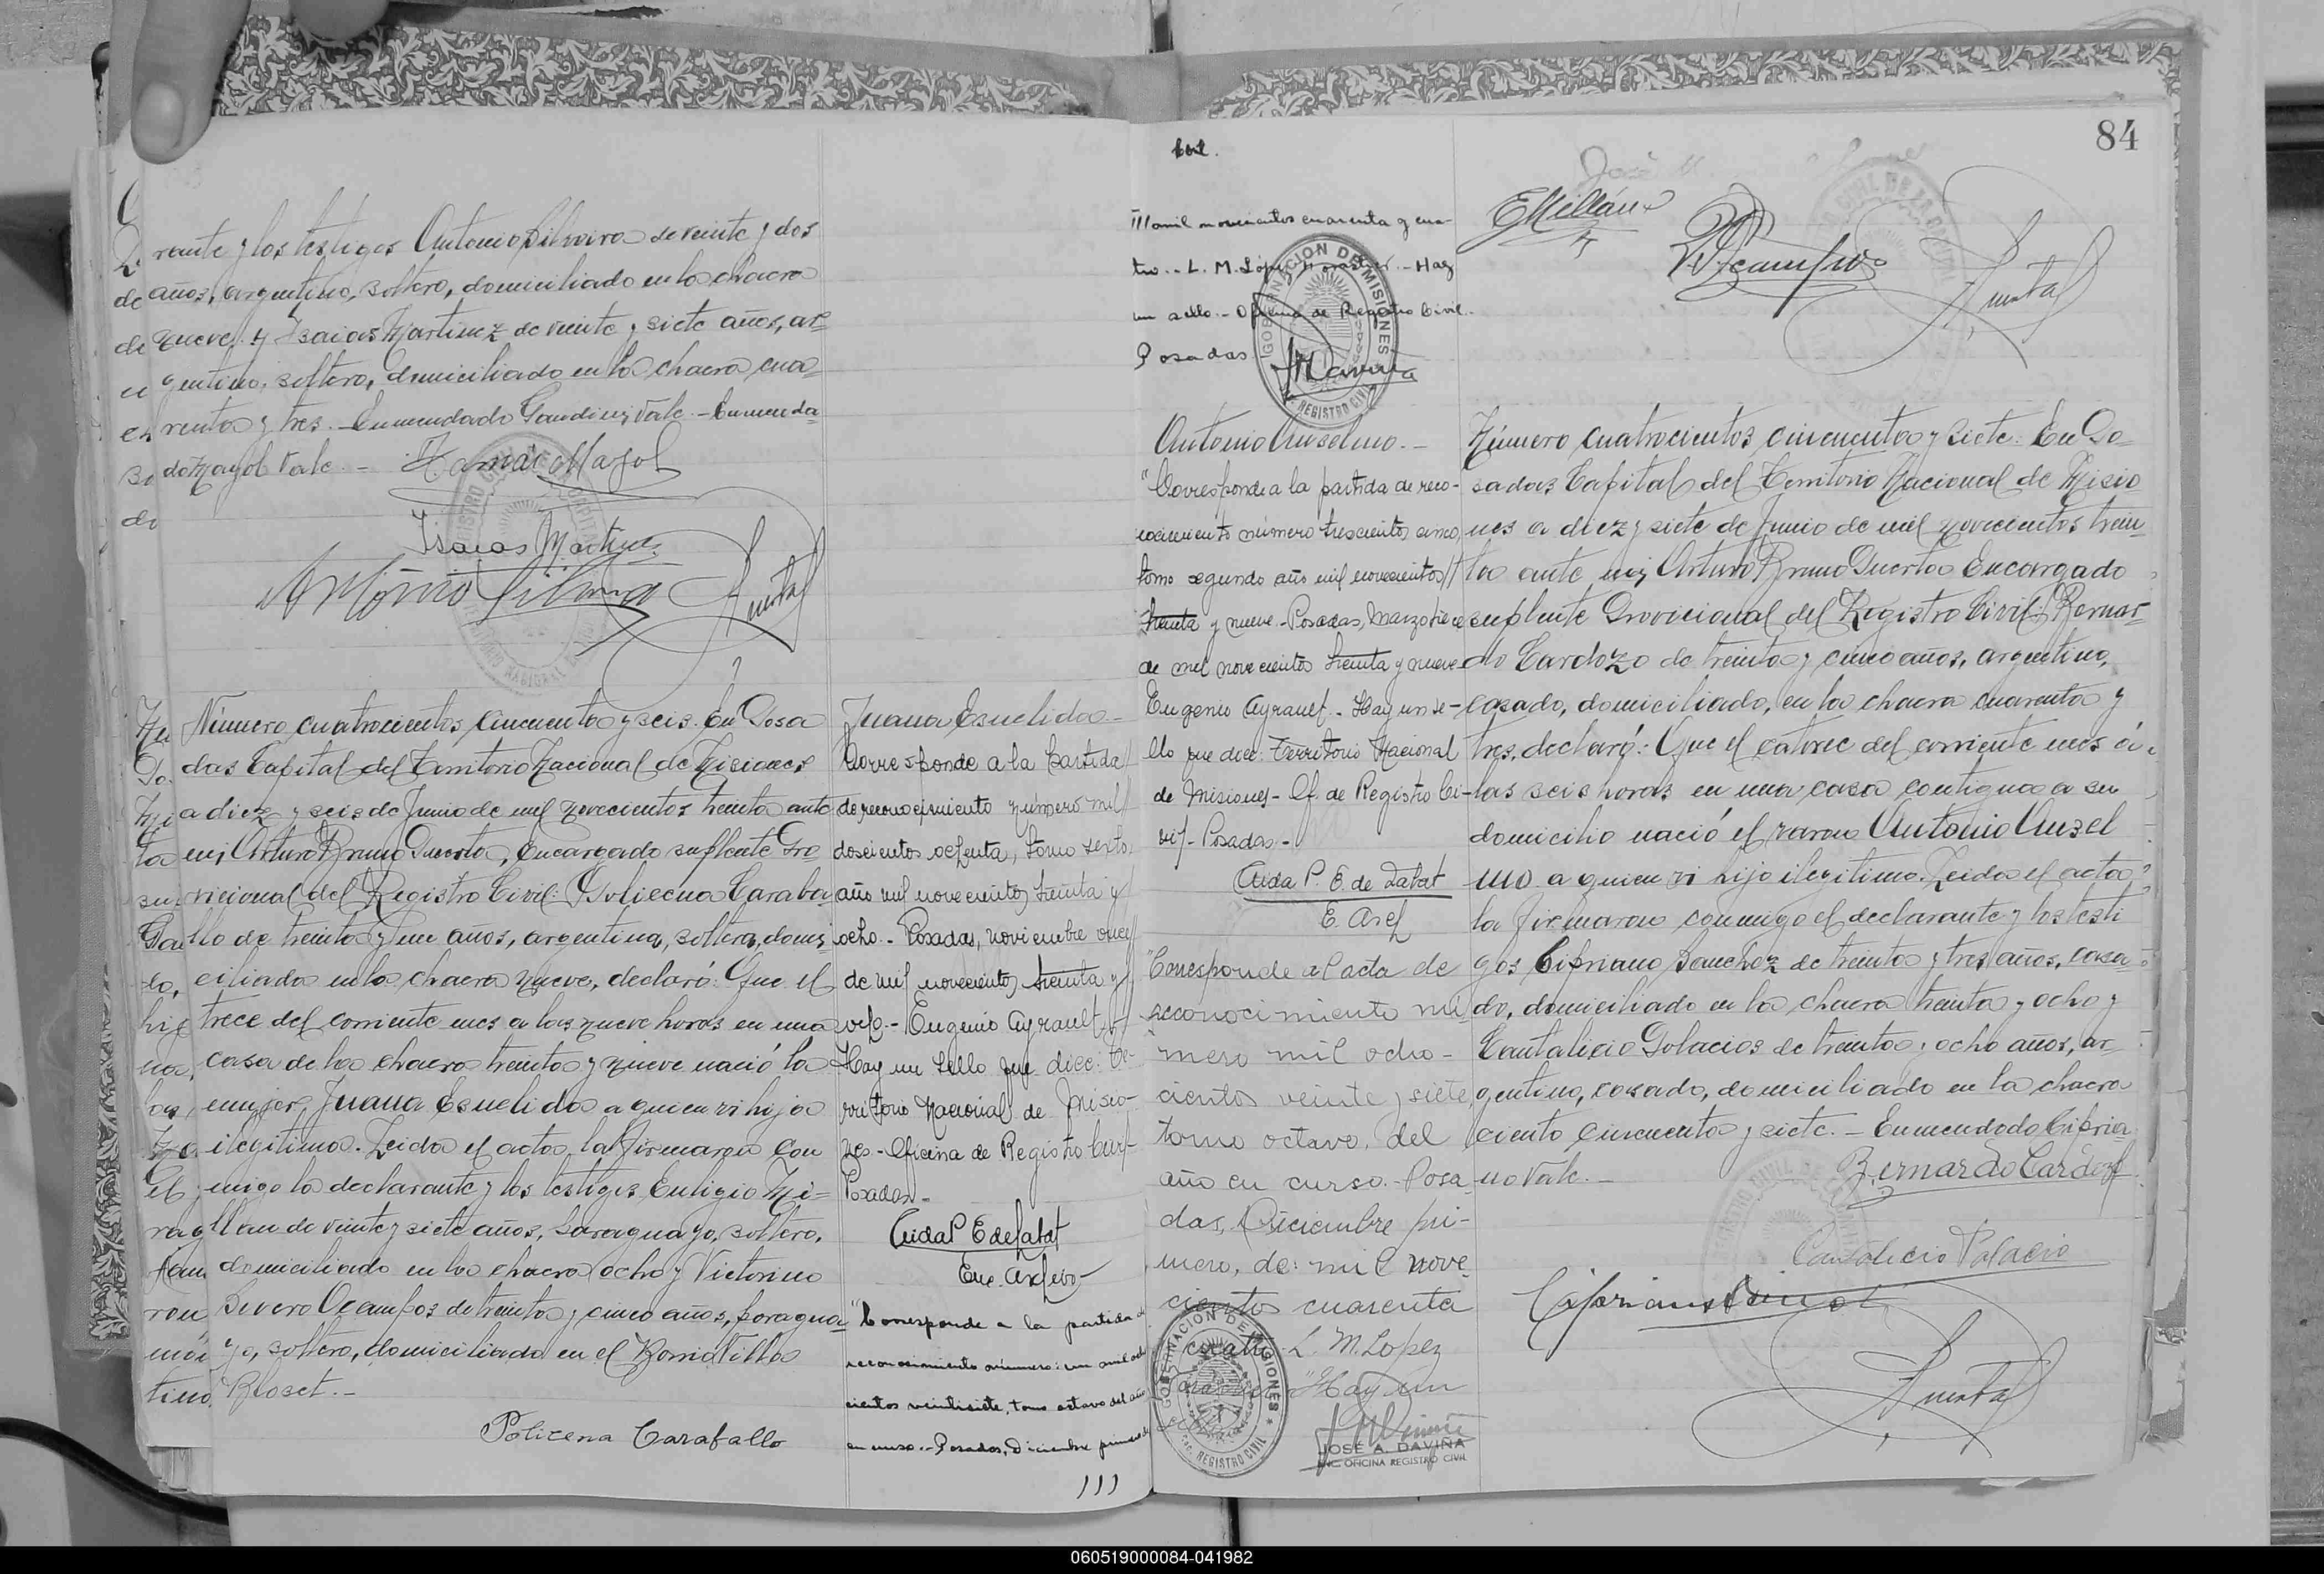 rante y los testigos Antonio Silveira de veinte y dos
años, argentino, soltero, domiciliado en la chacra
nueve y Isaias Martinez de veinte y siete años, ar-
gentino, soltero, domiciliado en la chacra cua-
renta y tres. - Enmendado vale. - Enmenda-
do Mayol Vale. -
Isaias Martinez
Antonio Silveira
Número cuatrocientos cincuenta y seis. En Posa
das Capital del Territorio Nacional de Misiones
a diez y seis de Junio de mil novecientos treinta ante
mi, Arturo Bruno Puerta, Encargado suplente Pro
vicional del Registro Civil: Policena Caraba
llo de treinta y un años, argentina, soltera, domi
ciliada en la chacra nueve, declaró: Que el
trece del corriente mes a las nueve horas en una
casa de la chacra treinta y nueve nació la
mujer Juana Esuelida a quien vi hija
ilegitima. Leida el acta, la firmaron con
migo la declarante y los testigos Eutigio Mi-
llan de veinte y siete años, paraguayo, soltero,
domiciliado en la chacra ocho y Victorino
Severo Ocampos de treinta y cinco años, paragua
yo, soltero, domiciliado en el Barrio Villa
Blosset. -
Policena Caraballo
Juana Esuelida -
Corresponde a la Partida
de reconocimiento número mil
doscientos ochenta, tomo sexto
año mil novecientos treinta y
ocho. - Posadas, noviembre once
de mil novecientos treinta y
ocho. - Eugenio Ayrault.
Hay un sello que dice: Te-
rritorio Nacional de Misio-
nes - Oficina de Registro Civil-
Posadas -
Aida P. E de Labat
"Corresponde a la partida de
reconocimiento número: un mil ocho
cientos veintisiete, tomo octavo del año
en curso. - Posadas, Diciembre primero de
///
84
///mil novecientos cuarenta y cua-
tro. - L. M. López - Hay
un sello. - Oficina de Registro Civil.
Posadas.
GOBERNACION DE MISIONES
REGISTRO CIVIL
EMillán
Antonio Anselmo. -
"Corresponde a la partida de reco-
nocimiento número trescientos cinco,
tomo segundo año mil novecientos //
treinta y nueve. - Posadas, Marzo trece
de mil novecientos treinta y nueve
Eugenio Ayrault. - Hay un se-
llo que dice: Territorio Nacional
de Misiones - Of. de Registro Ci-
vil - Posadas. -
Aida P. E. de Labat
"Corresponde al acta de
reconocimiento nú-
mero mil ocho-
cientos veinte y siete,
tomo octavo, del
año en curso. - Posa-
das, Diciembre pri-
mero, de mil nove-
cientos cuarenta
y cuatro. L. M. López
"Hay un
GOBERNACION DE MISIONES
REGISTRO CIVIL
JOSE A. DAVIÑA
ENC. OFICINA REGISTRO CIVIL
Número cuatrocientos cincuenta y siete: En Po-
sadas Capital del Territorio Nacional de Misio
nes a diez y siete de Junio de mil novecientos trein-
ta ante mi, Arturo Bruno Puerta Encargado
suplente Provicional del Registro Civil: Bernar-
do Cardozo de treinta y cinco años, argentino,
casado, domiciliado, en la chacra cuarenta y
tres, declaró: Que el catorce del corriente mes á
las seis horas en una casa contigua a su
domicilio nació el varon Antonio Ansel
mo a quien vi hijo ilegitimo. Leida el acta
la firmaron conmigo el declarante y los testi
gos Cipriano Sanchez de treinta y tres años, casa-
do, domiciliado en la chacra treinta y ocho y
Cantalicio Palacios de treinta y ocho años, ar-
gentino, casado, domiciliado en la chacra
ciento cincuenta y siete. - Enmendado Cipria
no Vale. -
Bernardo Cardozo
Cantalicio Palacio
060519000084-041982